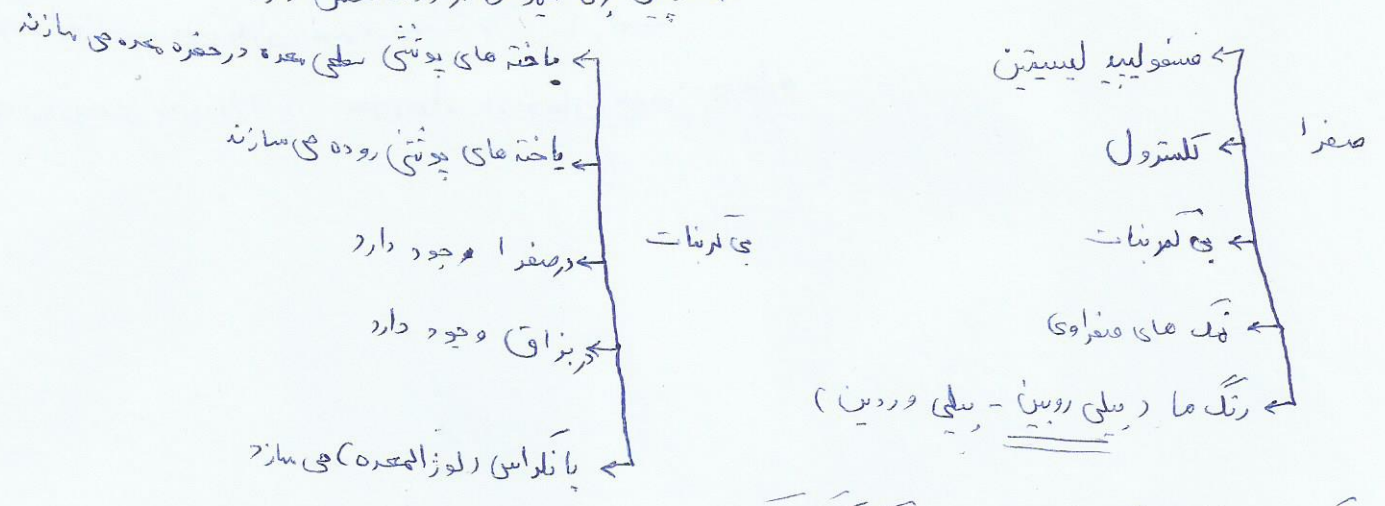 صفرا
← فسفولیپید لیسیتین
← کلسترول
← بی کربنات
← نمک های صفراوی
← رنگ ها (بیلی روبین - بیلی وردین)
بی کربنات
← یاخته های پوششی سطحی معده در حفره معده می سازند
← یاخته های پوششی روده می سازند
← در صفرا وجود دارد
← در بزاق وجود دارد
← پانکراس (لوزالمعده) می سازد